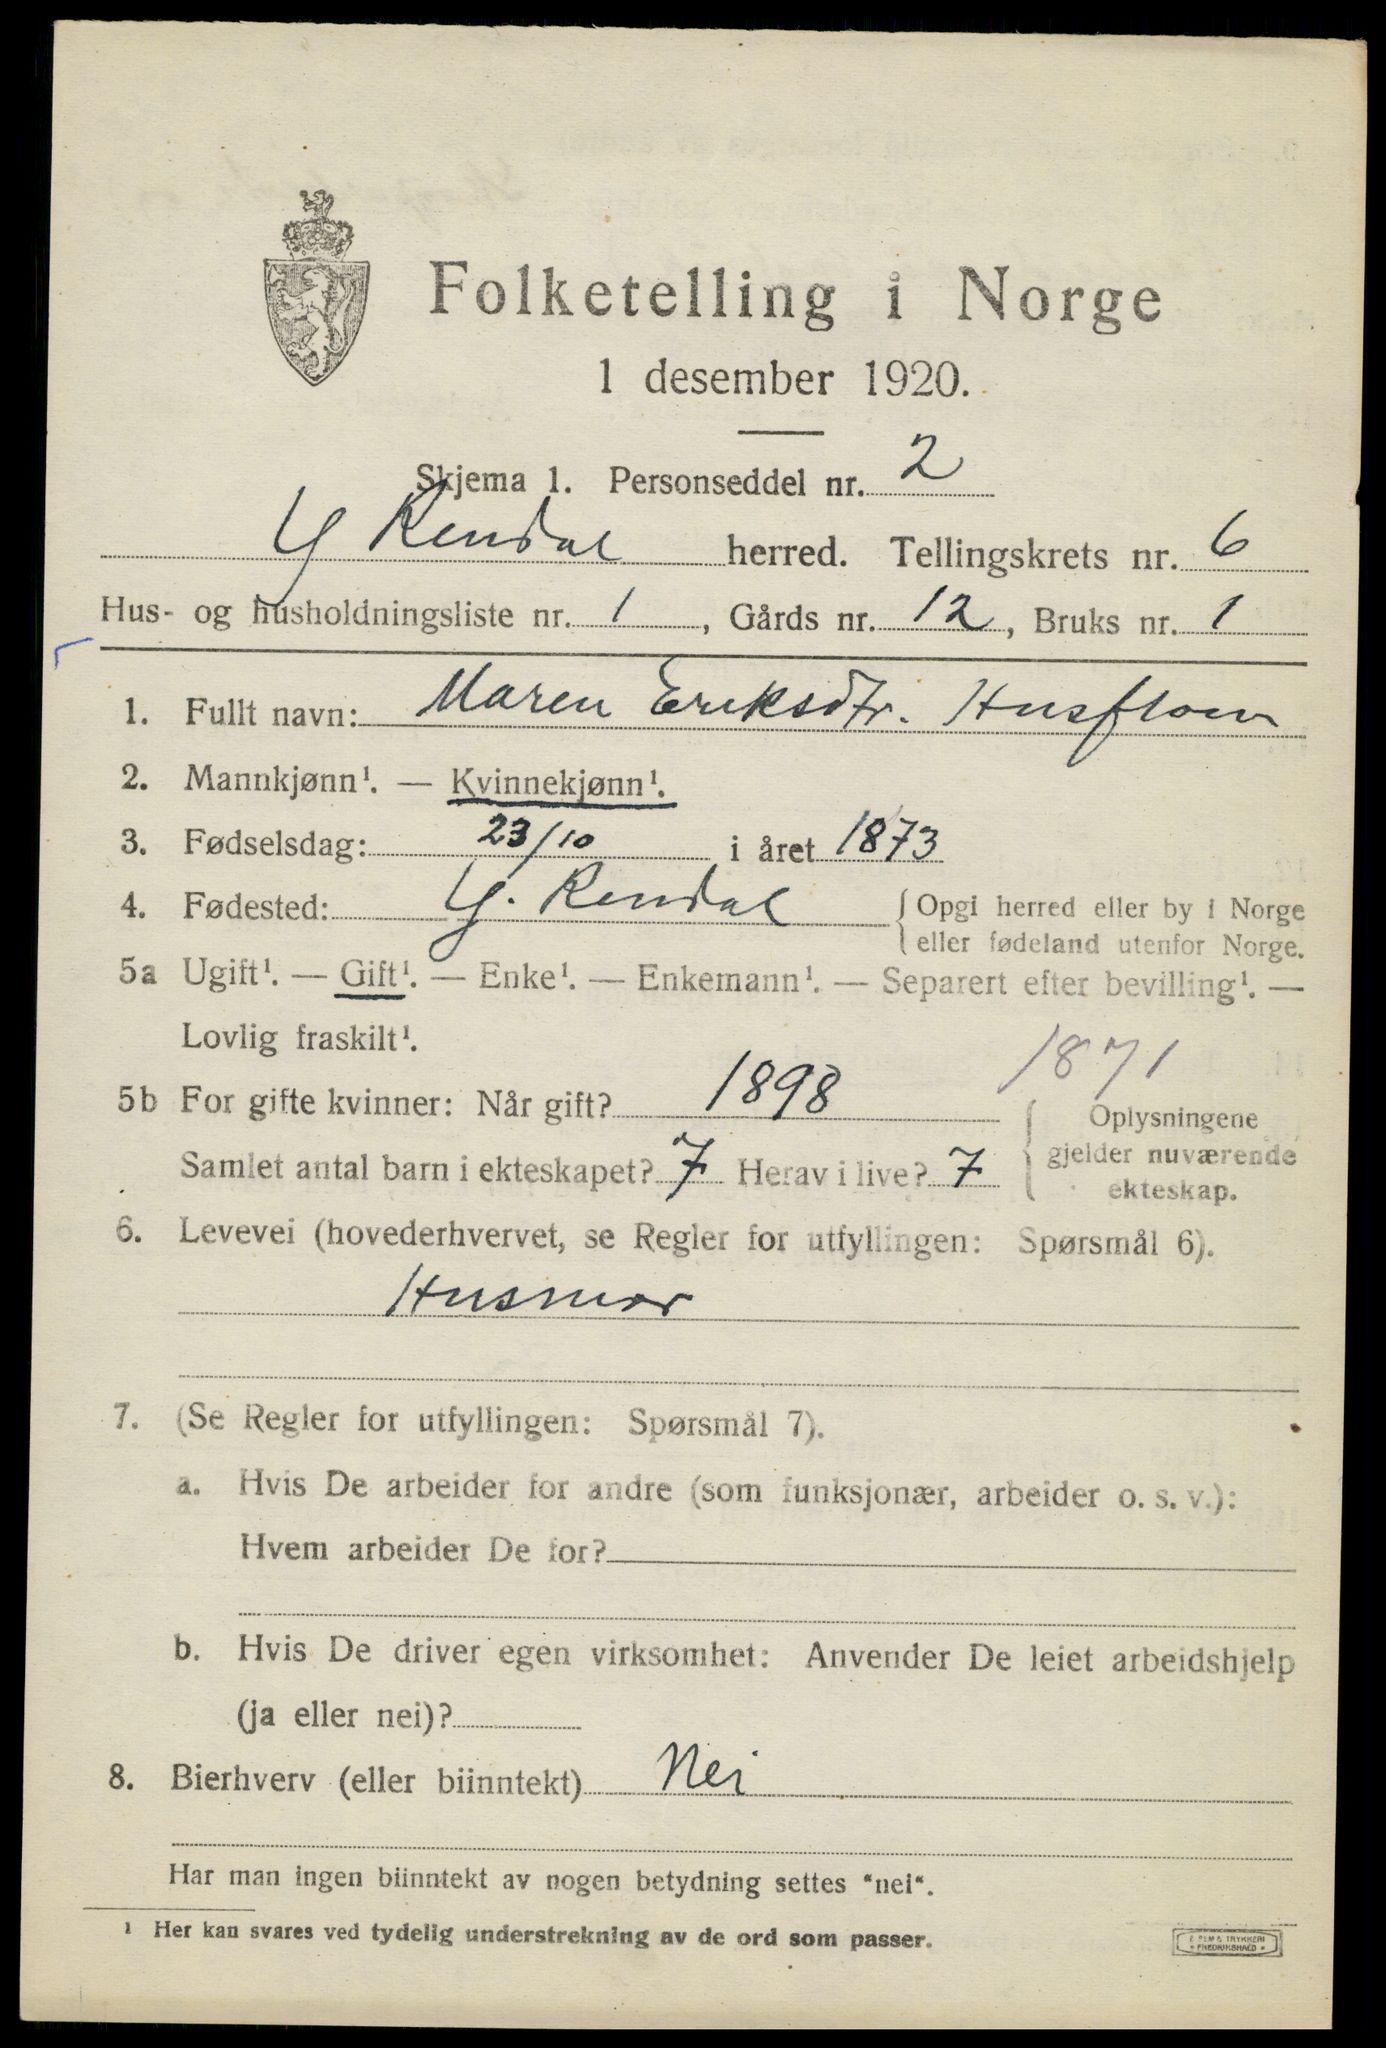 Folketelling i Norge
1 desember 1920.
Skjema 1. Personseddel nr. 2
Y Rendal herred. Tellingskrets nr. 6
Hus- og husholdningsliste nr. 1, Gårds nr. 12, Bruks nr. 1
1. Fullt navn: Maren Eriksdtr. Husfloen
2. Mannkjønn¹. — Kvinnekjønn¹.
3. Fødselsdag: 23/10 i året 1873
4. Fødested: Y. Rendal { Opgi herred eller by i Norge
eller fødeland utenfor Norge.
5a Ugift¹. — Gift¹. — Enke¹. — Enkemann¹. — Separert efter bevilling¹. —
Lovlig fraskilt¹.
1871
5b For gifte kvinner: Når gift? 1898
Samlet antal barn i ekteskapet? 7 Herav i live? 7
{ Oplysningene
gjelder nuværende
ekteskap.
6. Levevei (hovederhvervet, se Regler for utfyllingen: Spørsmål 6).
Husmor
7. (Se Regler for utfyllingen: Spørsmål 7).
a. Hvis De arbeider for andre (som funksjonær, arbeider o. s. v.):
Hvem arbeider De for?
b. Hvis De driver egen virksomhet: Anvender De leiet arbeidshjelp
(ja eller nei)?
8. Bierhverv (eller biinntekt) Nei
Har man ingen biinntekt av nogen betydning settes "nei".
¹ Her kan svares ved tydelig understrekning av de ord som passer.
TRYKKERI
FREDRIKSHALD